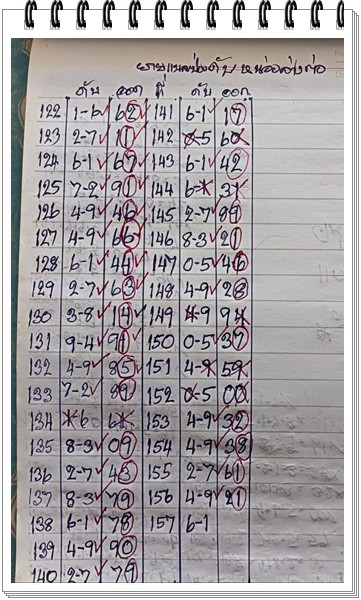 ดับ ออก ที่ ดับ ออก
122 1-6 62 141 6-1 17
123 2-7 11 142 8-5 60
124 6-1 67 143 6-1 42
125 7-2 91 144 6-* 31
126 4-9 46 145 2-7 89
127 4-9 66 146 8-3 21
128 6-1 44 147 0-5 46
129 2-7 63 148 4-9 28
130 3-8 14 149 4-9 94
131 9-4 91 150 0-5 37
132 4-9 85 151 4-9 59
133 7-2 89 152 0-5 00
134 6 153 4-9 32
135 8-3 09 154 4-9 38
136 2-7 43 155 2-7 61
137 8-3 79 156 4-9 21
138 6-1 78 157 6-1
139 4-9 90
140 2-7 79